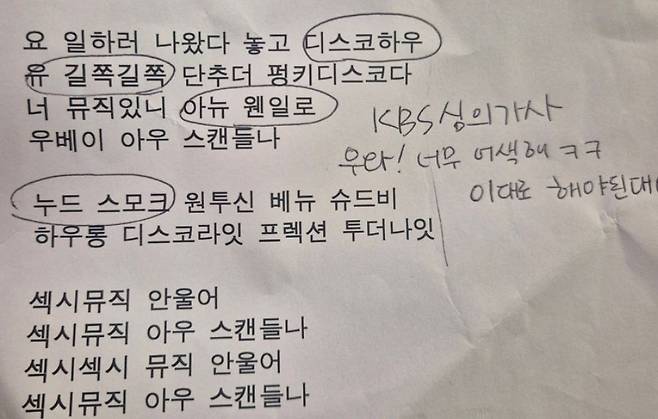 요 일하러 나왔다 놓고 디스코하우
유 길쪽길쪽 단추더 펑키디스코다
너 뮤직있니 아뉴 웬일로
우베이 아우 스캔들나
KBS 심의가사
우와! 너무 어색해 ㅋㅋ
이대로 해야된대
누드 스모크 원투신 베뉴 슈드비
하우롱 디스코라잇 프렉션 투더나잇
섹시뮤직 안울어
섹시뮤직 아우 스캔들나
섹시섹시 뮤직 안울어
섹시뮤직 아우 스캔들나